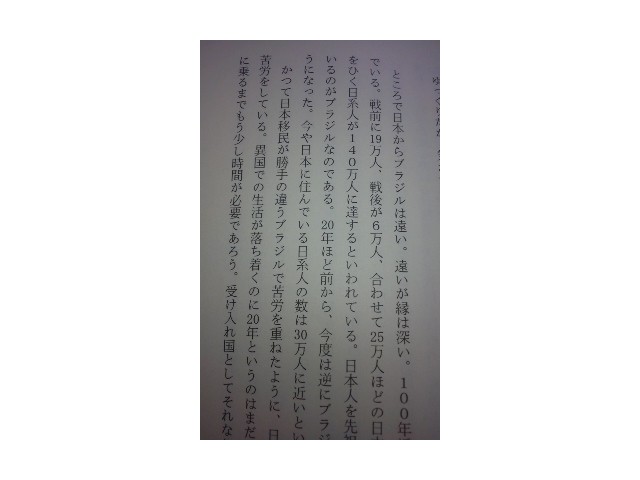 ところで日本からブラジルは遠い。遠いが縁は深い。100年
でいる。戦前に19万人、戦後が6万人、合わせて25万人ほどの日
をひく日系人が140万人に達するといわれている。日本人を先祖
いるのがブラジルなのである。20年ほど前から、今度は逆にブラジ
うになった。今や日本に住んでいる日系人の数は30万人に近いとい
かつて日本移民が勝手の違うブラジルで苦労を重ねたように、日
苦労をしている。異国での生活が落ち着くのに20年というのはまだ
に乗るまでもう少し時間が必要であろう。受け入れ国としてそれな